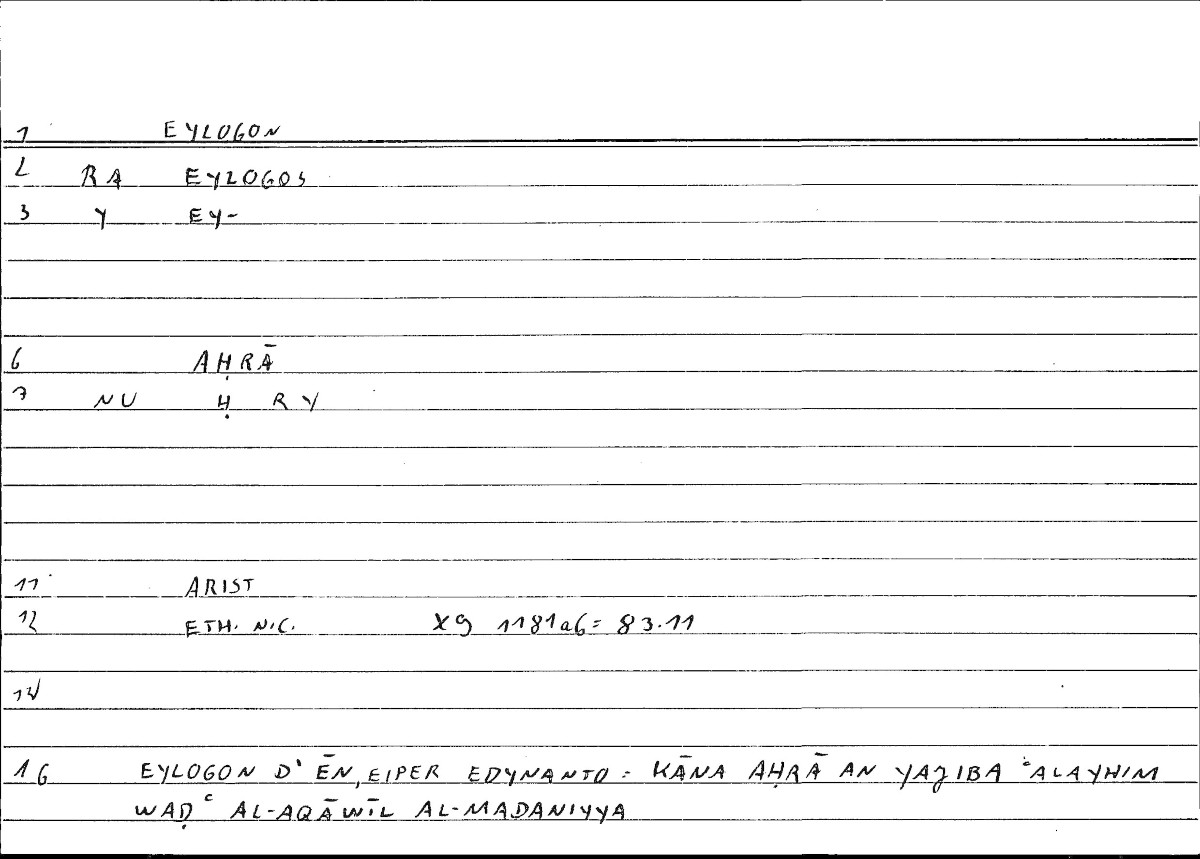 1 EYLOGON
2 RA EYLOGOS
3 Y EY-
6 AḤRĀ
7 NU Ḥ RY
11 ARIST
12 ETH. N.C. X9 1181a6 = 83.11
14
16 EYLOGON D' ĒN, EIPER EDYNANTO = KĀNA AḤRĀ AN YAJIBA ʿALAYHIM
WAḌʿ AL-AQĀWĪL AL-MADANIYYA